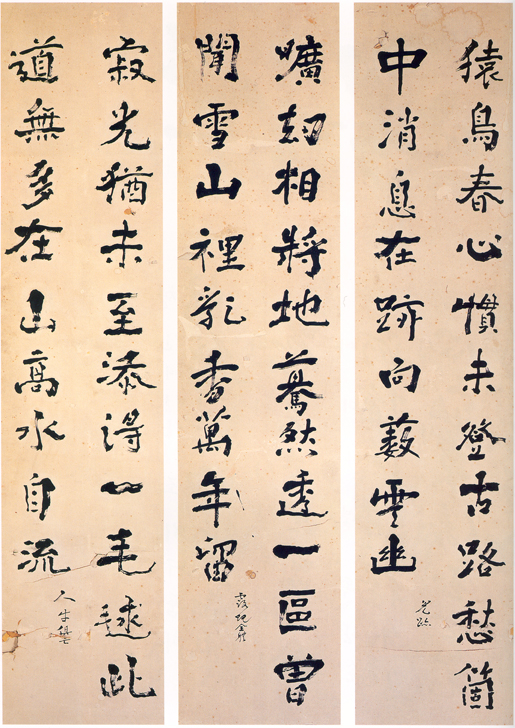 猿鳥春心慣未登古路愁箇
中消息在跡向藪雲幽
見跡
曠劫相將地驀然透一區曾
聞雪山裡乳香萬年留
寂光猶未至添得一毛毬此
道無多在山高水自流
人牛俱忘